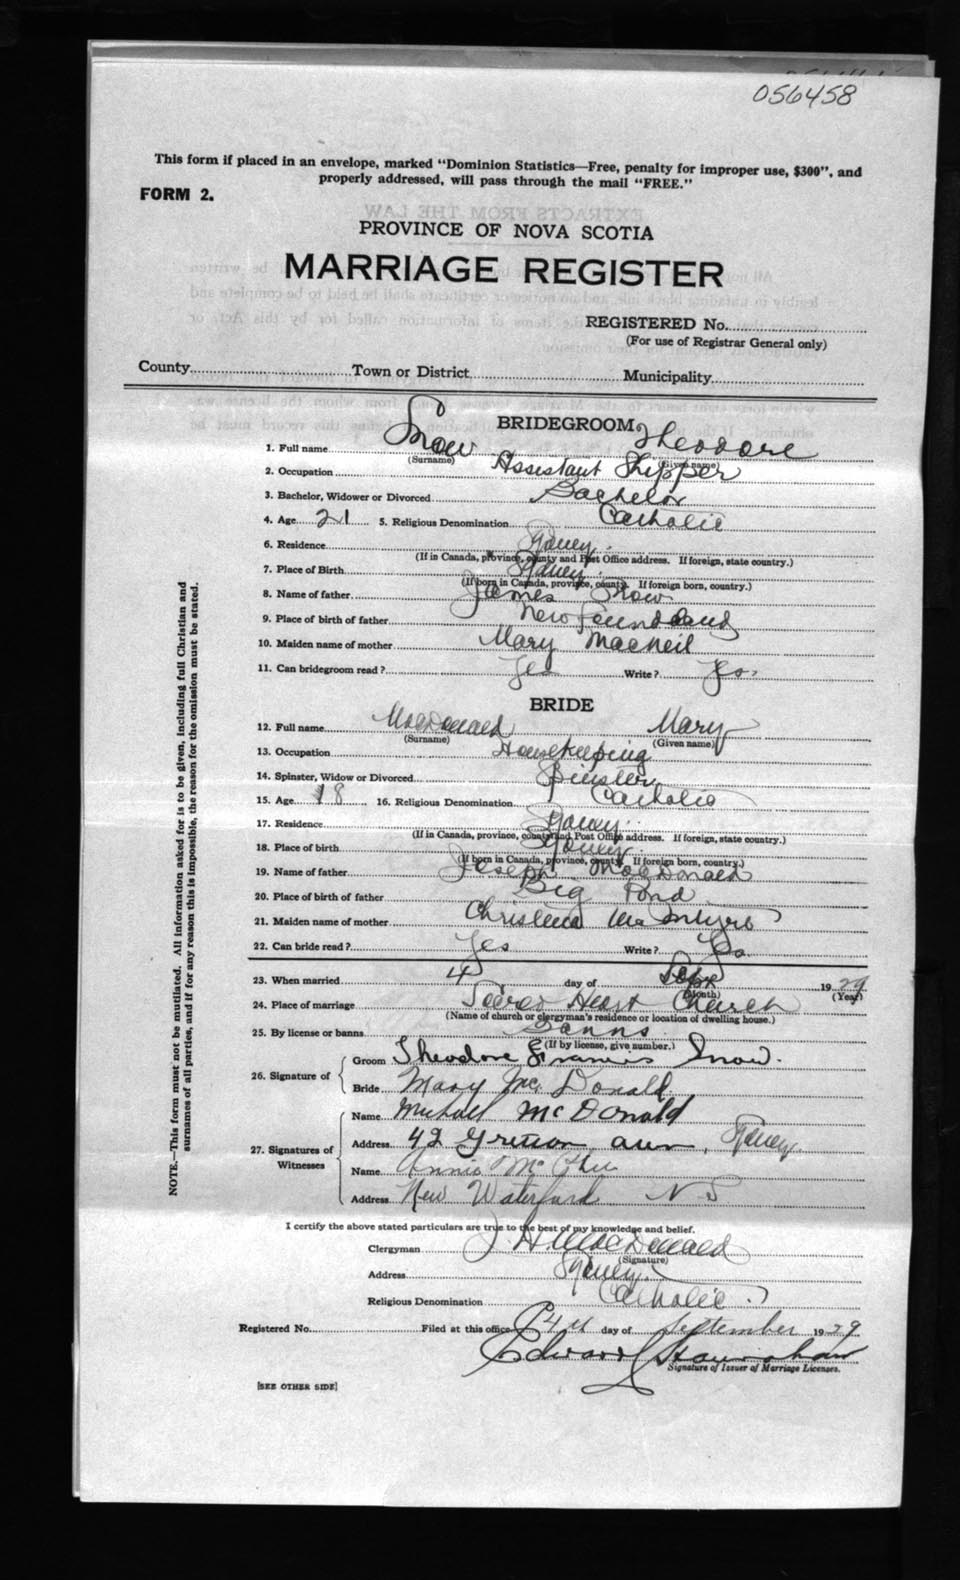 056458
This form if placed in an envelope, marked "Dominion Statistics—Free, penalty for improper use, $300", and
properly addressed, will pass through the mail "FREE."
FORM 2.
PROVINCE OF NOVA SCOTIA
MARRIAGE REGISTER
REGISTERED No.
(For use of Registrar General only)
County Town or District Municipality
BRIDEGROOM
1. Full name Snow Theodore
(Surname) (Given name)
2. Occupation Assistant Shipper
3. Bachelor, Widower or Divorced Bachelor
4. Age 21 5. Religious Denomination Catholic
6. Residence Sydney
(If in Canada, province, county and Post Office address. If foreign, state country.)
7. Place of Birth Sydney
(If born in Canada, province, county. If foreign born, country.)
8. Name of father James Snow
9. Place of birth of father Newfoundland
10. Maiden name of mother Mary MacNeil
11. Can bridegroom read? Yes Write? Yes
BRIDE
12. Full name MacDonald Mary
(Surname) (Given name)
13. Occupation Housekeeping
14. Spinster, Widow or Divorced Spinster
15. Age 18 16. Religious Denomination Catholic
17. Residence Sydney
(If in Canada, province, county and Post Office address. If foreign, state country.)
18. Place of birth Sydney
(If born in Canada, province, county. If foreign born, country.)
19. Name of father Joseph MacDonald
20. Place of birth of father Big Pond
21. Maiden name of mother Christena McIntyre
22. Can bride read? Yes Write? Yes
23. When married 4 day of Sept 1929
(Month) (Year)
24. Place of marriage Sacred Heart Church
(Name of church or clergyman's residence or location of dwelling house.)
25. By license or banns Banns
(If by license, give number.)
26. Signature of Groom Theodore Francis Snow.
Bride Mary Mc Donald
27. Signatures of Witnesses Name Michael McDonald
Address 42 Sydney
Name Annie Mc Phee
Address New Waterford N S
I certify the above stated particulars are true to the best of my knowledge and belief.
Clergyman J. H. MacDonald
(Signature)
Address Sydney
Religious Denomination Catholic
Registered No. Filed at this office 4th day of September 1929
Edward
Signature of Issuer of Marriage Licenses.
[SEE OTHER SIDE]
NOTE.—This form must not be mutilated. All information asked for is to be given, including full Christian and
surnames of all parties, and if for any reason this is impossible, the reason for the omission must be stated.